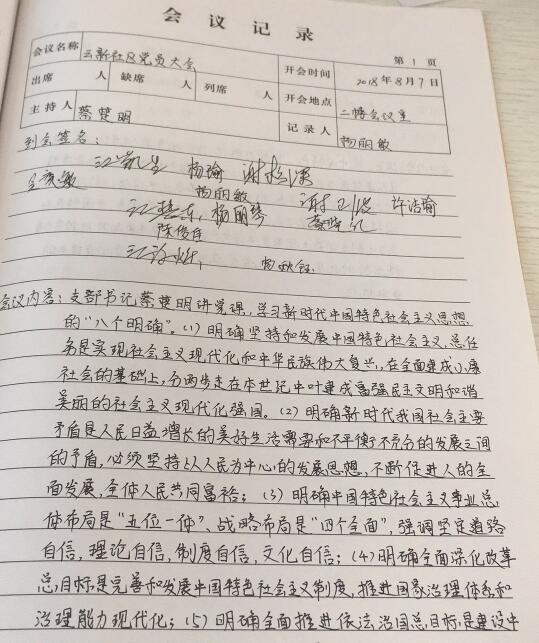 会议记录
第 1 页
会议名称 云新社区党员大会 开会时间 2018年8月7日
出席 人 缺席 人 列席 人 开会地点 二楼会议室
主持人 蔡楚明 记录人 杨丽敏
到会签名:
杨瑜
许洁瑜
杨丽敏
杨丽琴
陈俊佳
会议内容:支部书记蔡楚明讲党课,学习新时代中国特色社会主义思想
的“八个明确”。(1)明确坚持和发展中国特色社会主义,总任
务是实现社会主义现代化和中华民族伟大复兴,在全面建成小康
社会的基础上,分两步走在本世纪中叶建成富强民主文明和谐
美丽的社会主义现代化强国。(2)明确新时代我国社会主要
矛盾是人民日益增长的美好生活需要和不平衡不充分的发展之间
的矛盾,必须坚持以人民为中心的发展思想,不断促进人的全
面发展,全体人民共同富裕;(3)明确中国特色社会主义事业总
体布局是“五位一体”、战略布局是“四个全面”,强调坚定道路
自信,理论自信,制度自信,文化自信;(4)明确全面深化改革
总目标是完善和发展中国特色社会主义制度,推进国家治理体系和
治理能力现代化;(5)明确全面推进依法治国总目标是建设中